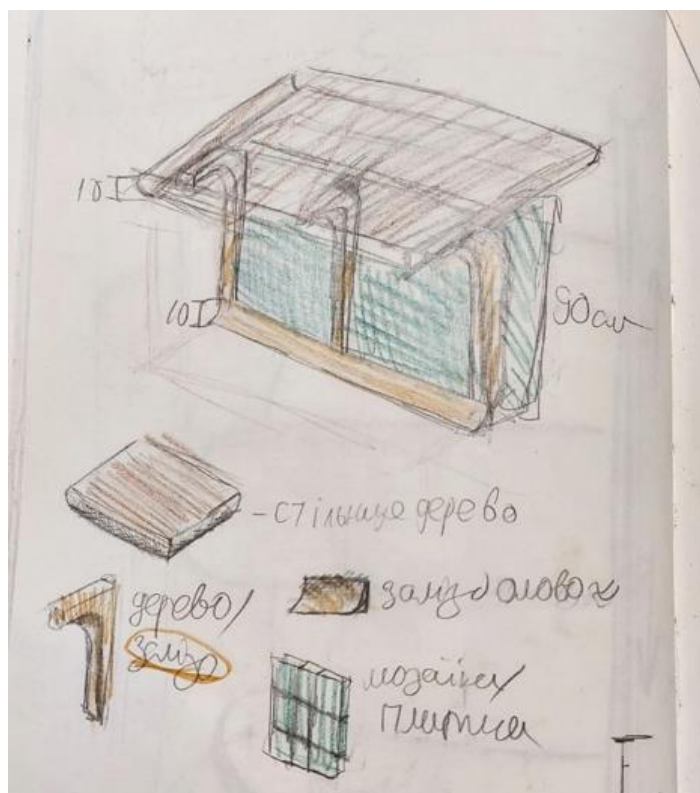 10
10
90см
- стільниця дерево
дерево/
залізо
мозаїка/
плитка